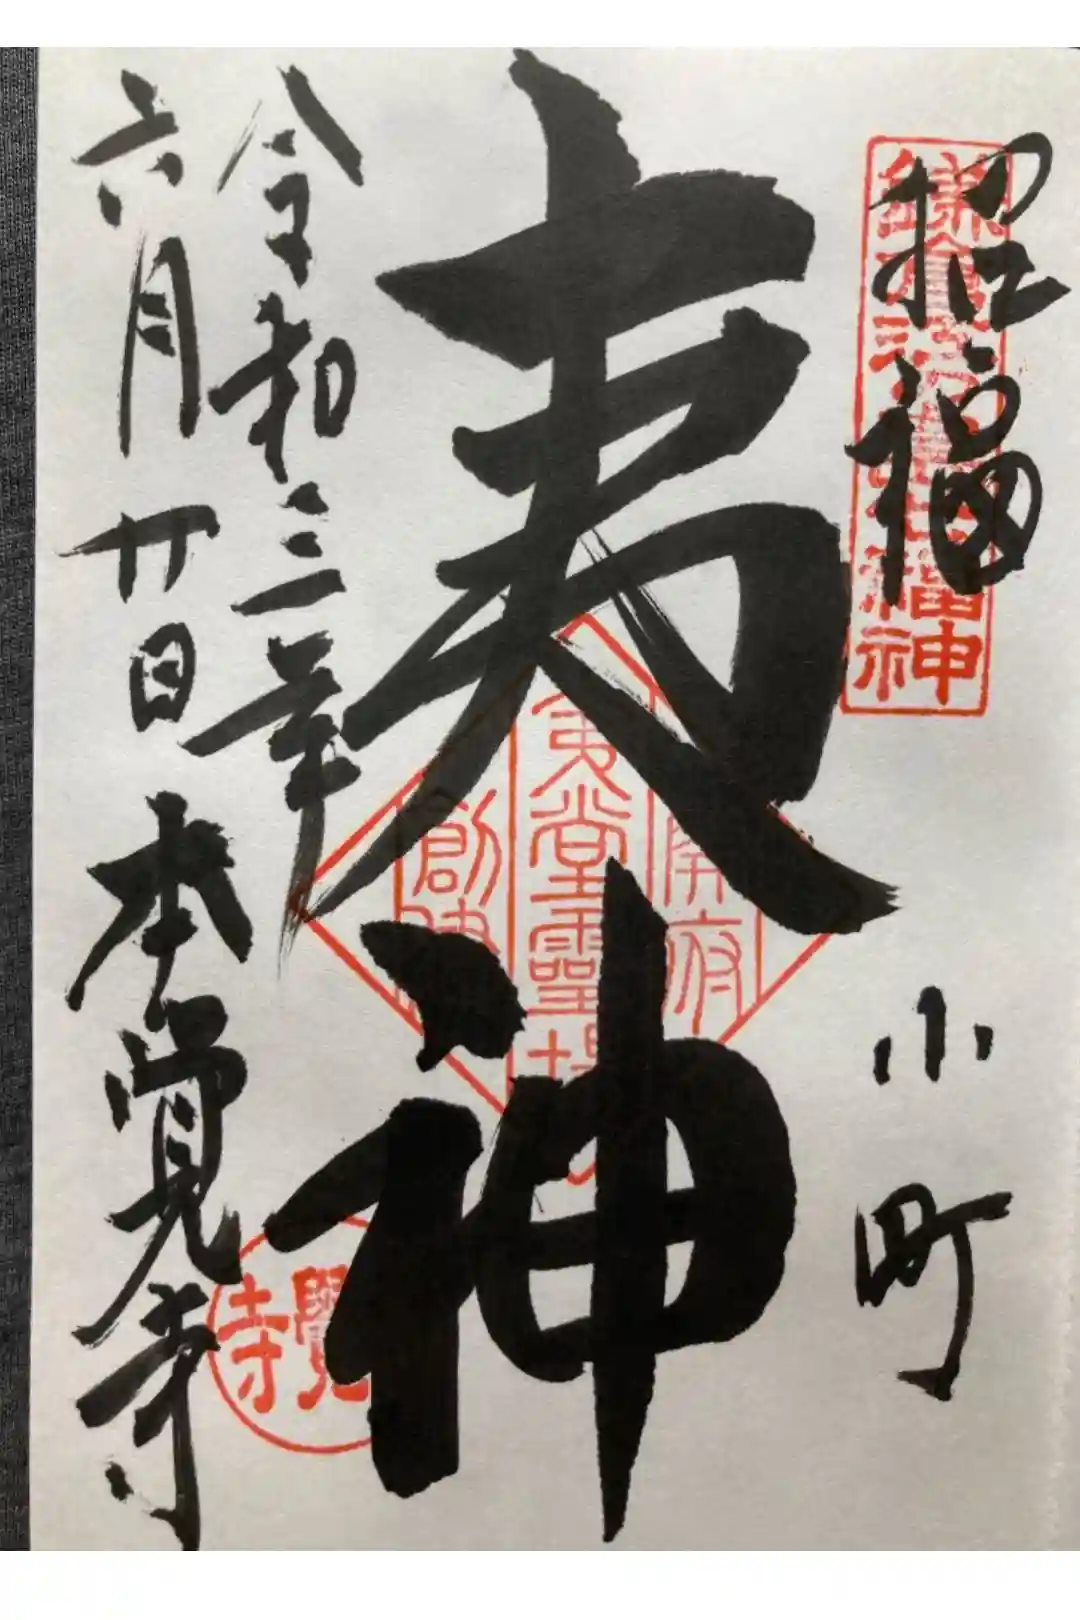 招福
鎌倉江ノ島七福神
小町
夷神
開府
夷堂霊場
創建
令和三年
六月廿日
本覚寺
覺寺